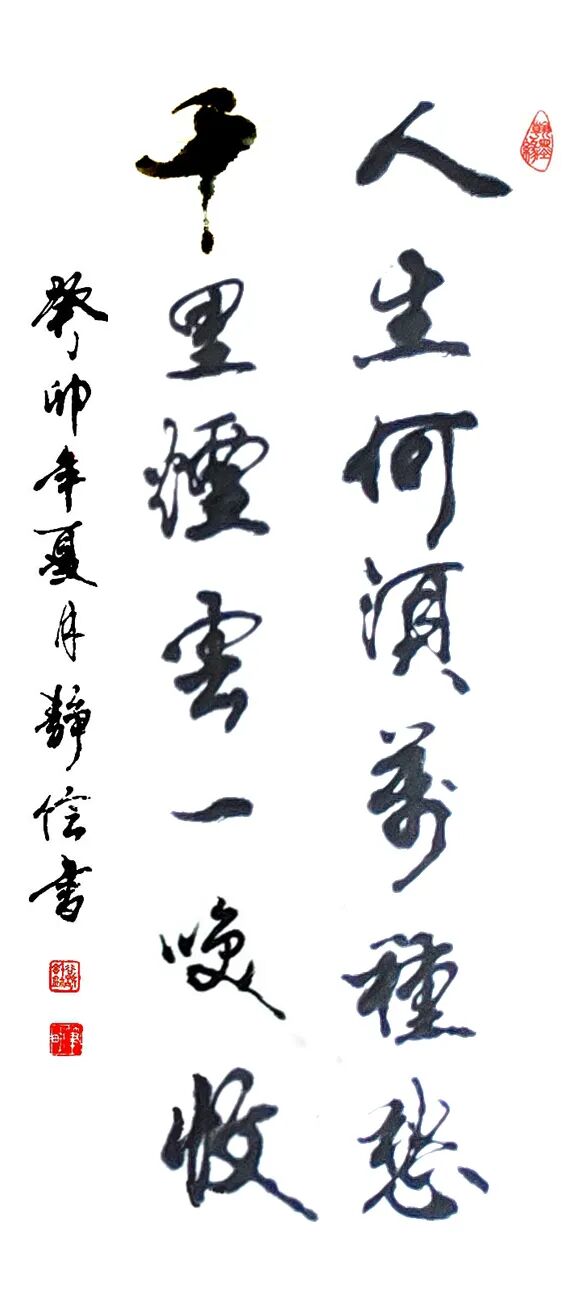 翰墨緣
人生何須萬種愁
千里煙雲一咲收
癸卯年夏月靜信書